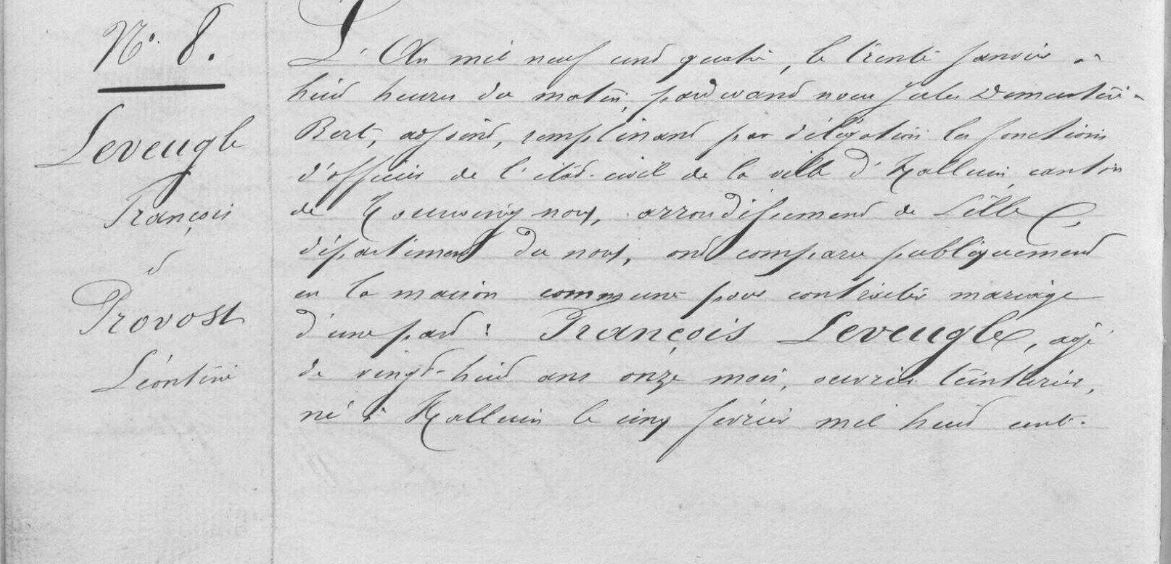 N° 8.
Leveugle
François
&
Provost
Léontine
L'An mil neuf cent quatre, le trente janvier à
huit heures du matin, pardevant nous Jules Demeestère-
Bert, adjoint, remplissant par délégation les fonctions
d'officier de l'état-civil de la ville d'Halluin, canton
de Tourcoing nord, arrondissement de Lille,
département du nord, ont comparu publiquement
en la maison commune pour contracter mariage
d'une part : François Leveugle, agé
de vingt-huit ans onze mois, ouvrier teinturier,
né à Halluin le cinq février mil huit cent-